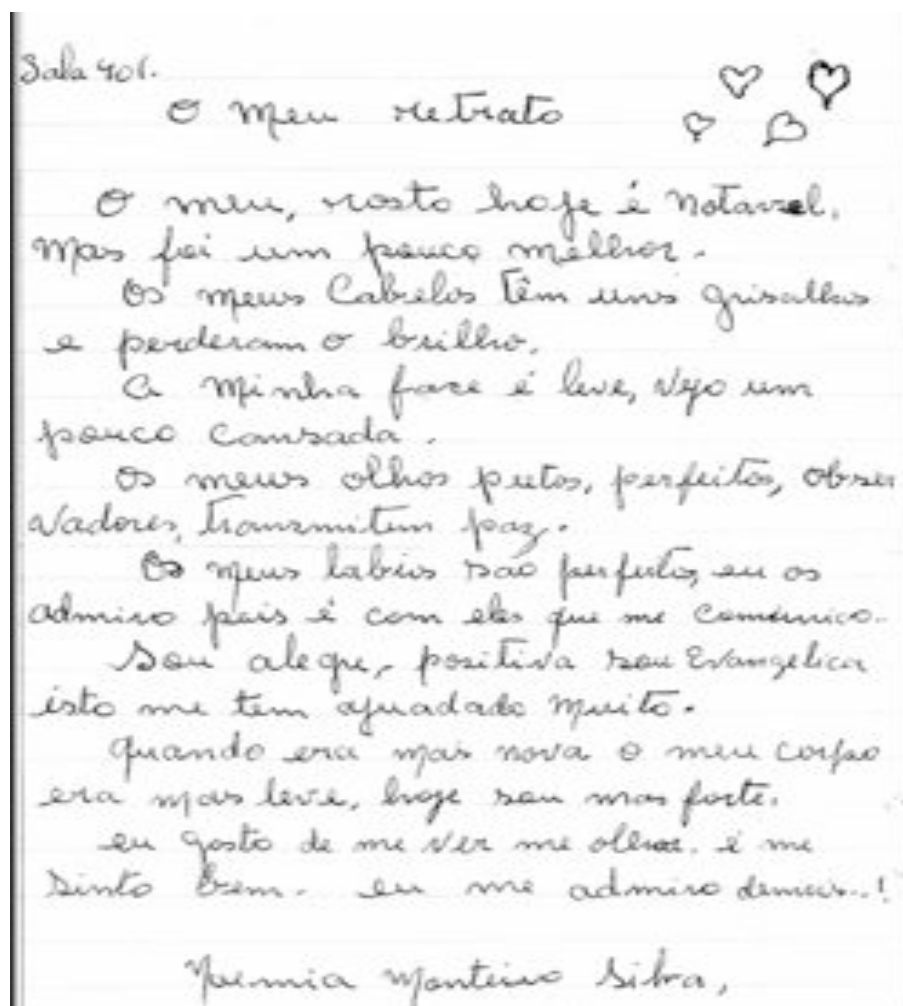 Sala 401.
O meu retrato
O meu, rosto hoje é notavel,
mas foi um pouco melhor.
Os meus Cabelos têm uns grisalhos
e perderam o brilho.
A minha face é leve, vejo um
pouco cansada.
Os meus olhos pretos, perfeitos, obser
vadores, transmitem paz.
Os meus labios são perfeitos, eu os
admiro pois é com eles que me comunico.
Sou alegre, positiva sou Evangelica
isto me tem ajuadado muito.
quando era mas nova o meu corpo
era mas leve, hoje sou mas forte.
eu gosto de me ver me olhar. e me
sinto bem. eu me admiro demais..!
Noemia Monteiro Silva,